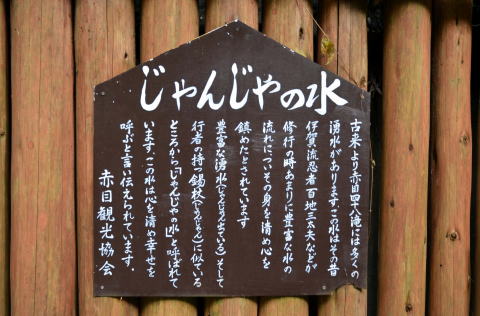 じゃんじゃの水
古来より赤目四八滝には多くの
湧水があります。この水はその昔
伊賀流忍者百地三太夫などが
修行の時あまりに豊富な水の
流れについその身を清め心を
鎮めたとされています
豊富な湧水(じゃんじゃん出ている)そして
行者の持つ錫杖(じゃんじゃん)に似ている
ところから「じゃんじゃの水」と呼ばれて
います。この水は心を清め幸せを
呼ぶと言い伝えられています。
赤目観光協会